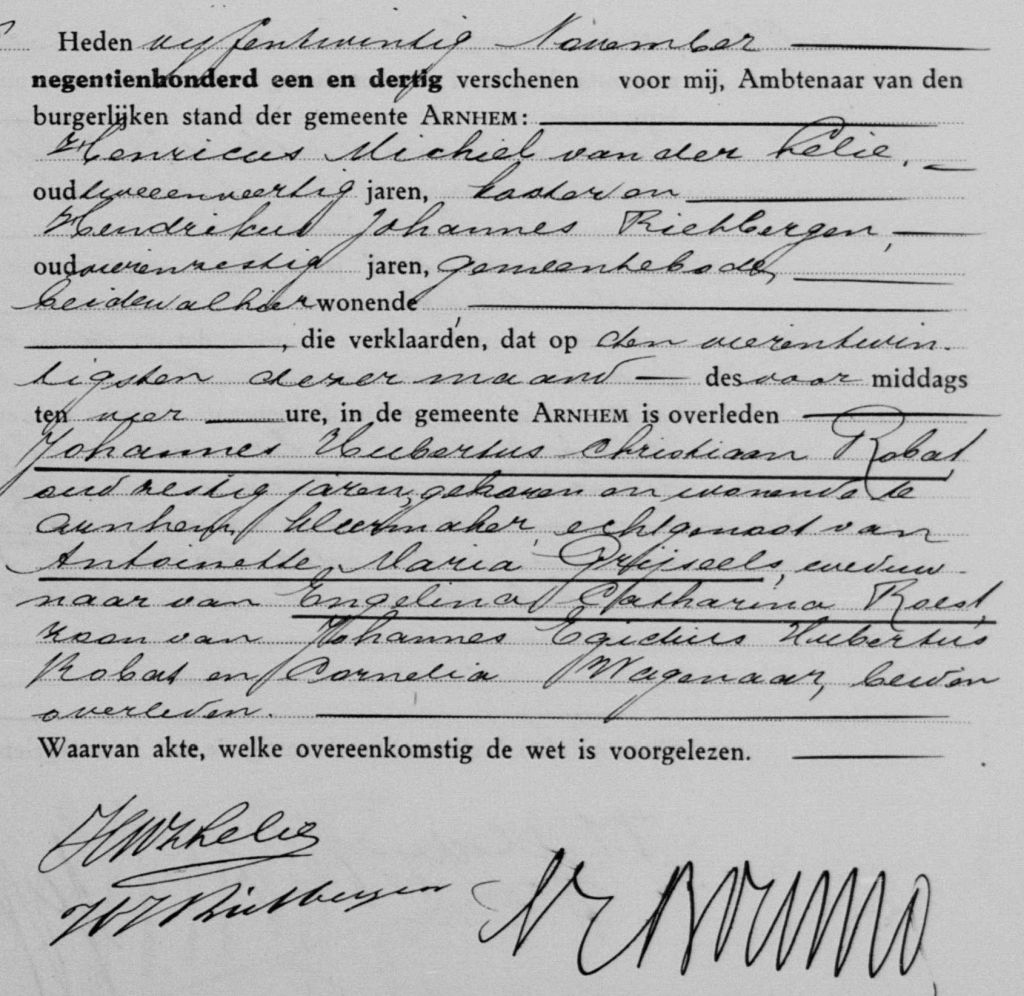 Heden vyfentwintig November
negentienhonderd een en dertig verschenen voor mij, Ambtenaar van den
burgerlijken stand der gemeente ARNHEM:
Henricus Michiel van der Lelie,
oud tweeenveertig jaren, koster en
Hendrikus Johannes Rietbergen,
oud vierenzestig jaren, gemeentebode,
beiden alhier wonende
, die verklaarden, dat op den vierentwin-
tigsten dezer maand des voor middags
ten vier ure, in de gemeente ARNHEM is overleden
Johannes Hubertus Christiaan Robat,
oud zestig jaren, geboren en wonende te
Arnhem, kleermaker, echtgenoot van
Antoinette Maria Grijseels, weduw-
naar van Engelina Catharina Roest,
zoon van Johannes Egidius Hubertus
Robat en Cornelia Wagenaar, beiden
overleden.
Waarvan akte, welke overeenkomstig de wet is voorgelezen.
HJRietbergen